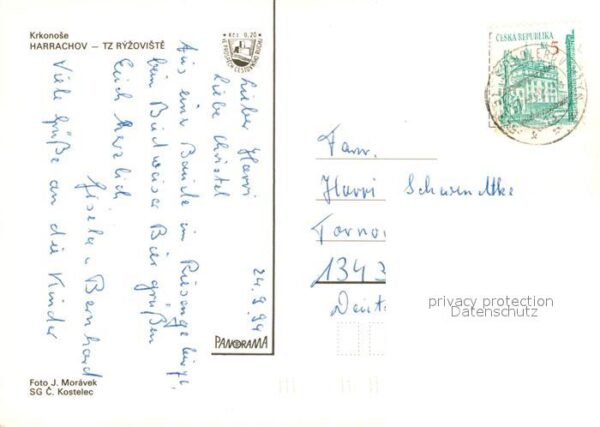 Krkonoše
HARRACHOV – TZ RÝŽOVIŠTĚ
Kčs 0,20
ČESKÁ REPUBLIKA
Kč 5
24.9.94
Lieber Harri
Liebe Christel
Aus einer Baude im Riesengebirge
beim Budweiser Bier grüßen
Euch herzlich
Gisela u Bernhard
Viele Grüße an die Kinder
Fam.
Harri Schwendtke
Tornow
1343
Deut
privacy protection
Datenschutz
PANORAMA
Foto J. Morávek
SG Č. Kostelec